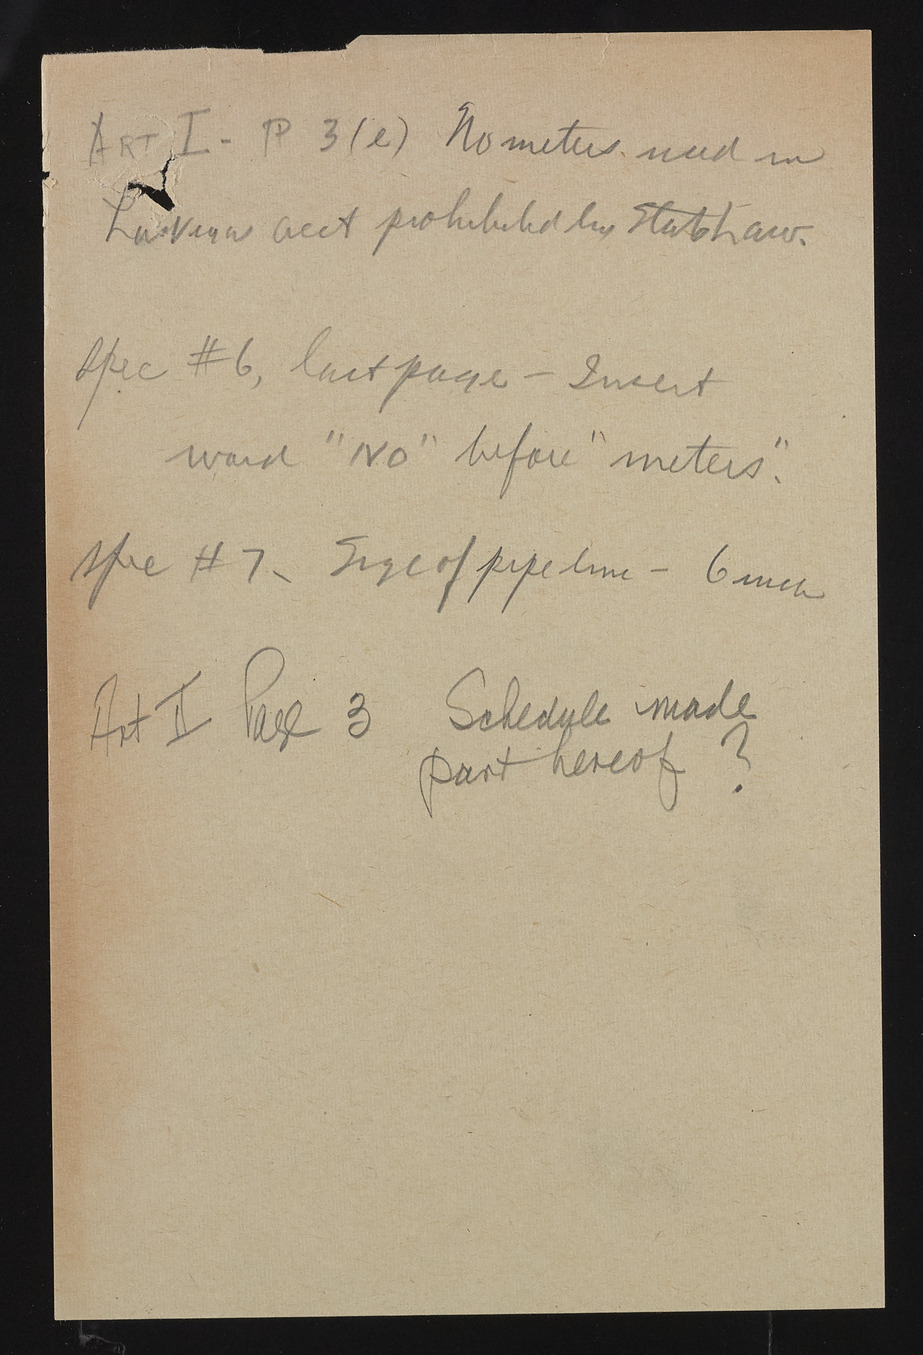 ART I - P 3(e) No meters used in
Las Vegas acct prohibited by State Law.
Spec #6, last page - Insert
word "NO" before "meters".
Spec #7 - Size of pipe line - 6 inch
Art II Page 3 Schedule made
part hereof ?